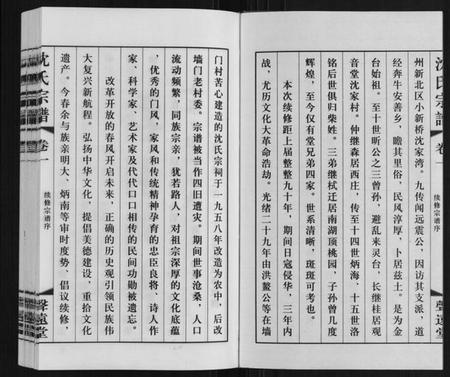 沈氏宗譜
卷一
续修宗谱序
聲遠堂
州新北区小新桥沈家湾。九传闻远震公，因访其支派，道
经奔牛安善乡，瞻其里俗，民风淳厚，卜居兹土。是为金
台始祖。至十世昕公之三曾孙，避乱来灵台，长继桂居观
音堂沈家村。仲继森居西庄，传至十四世炳海，十五世洛
铭后世俱归柴姓。三弟继栻迁居南湖顶桃园，子孙曾几度
辉煌，至今仅有堂兄弟四家。世系清晰，斑斑可考也。
本次续修距上届整整九十年，期间日寇侵华，三年内
战，尤历文化大革命浩劫。光绪二十九年由洪鳌公等在墙
门村苦心建造的沈氏宗祠于一九五八年改造为农中，后改
墙门老村委。宗谱被当作四旧遭灾。期间世事沧桑，人口
流动频繁，同族宗亲，犹若路人，对祖宗深厚的文化底蕴
，优秀的门风，家风和传统精神孕育的忠臣良将、诗人作
家、科学家、艺术家及代代口口相传的民间功勋被遗忘。
改革开放的春风开启未来，正确的历史观引领民族伟
大复兴新航程。弘扬中华文化，提倡美德建设，重拾文化
遗产。今春余与族亲明大、炳南等审时度势，倡议续修，
沈氏宗譜
卷一
续修宗谱序
聲遠堂